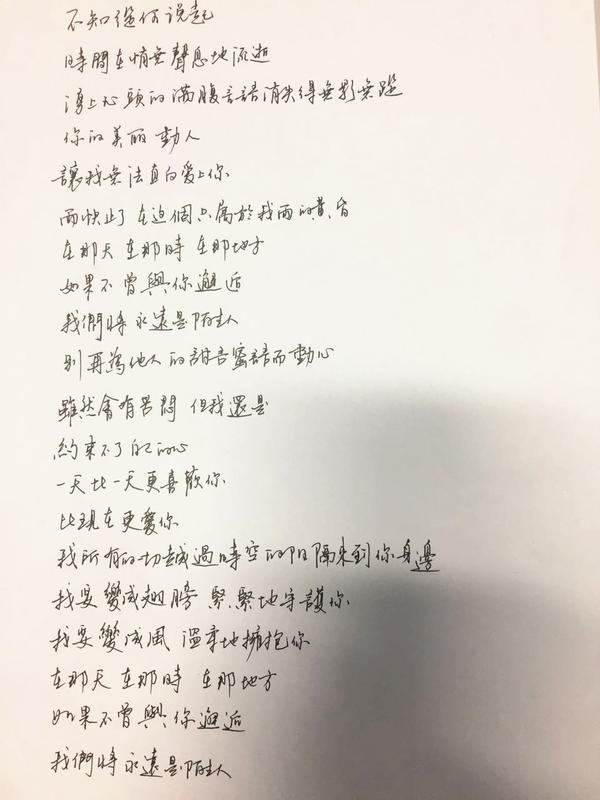 不知從何说起
時間在悄無聲息地流逝
湧上心頭的满腹言語消失得無影無蹤
你的美丽動人
讓我無法直白爱上你
雨快止了 在这個只属於我两的黄昏
在那天 在那時 在那地方
如果不曾與你邂逅
我們將永遠是陌生人
別再為他人的甜言蜜語而動心
雖然會有苦悶 但我還是
約束不了自己的心
一天比一天更喜歡你
比現在更愛你
我所有的一切越過時空的阻隔來到你身邊
我要變成翅膀 緊緊地守護你
我要變成風 溫柔地擁抱你
在那天 在那時 在那地方
如果不曾與你邂逅
我們將永遠是陌生人